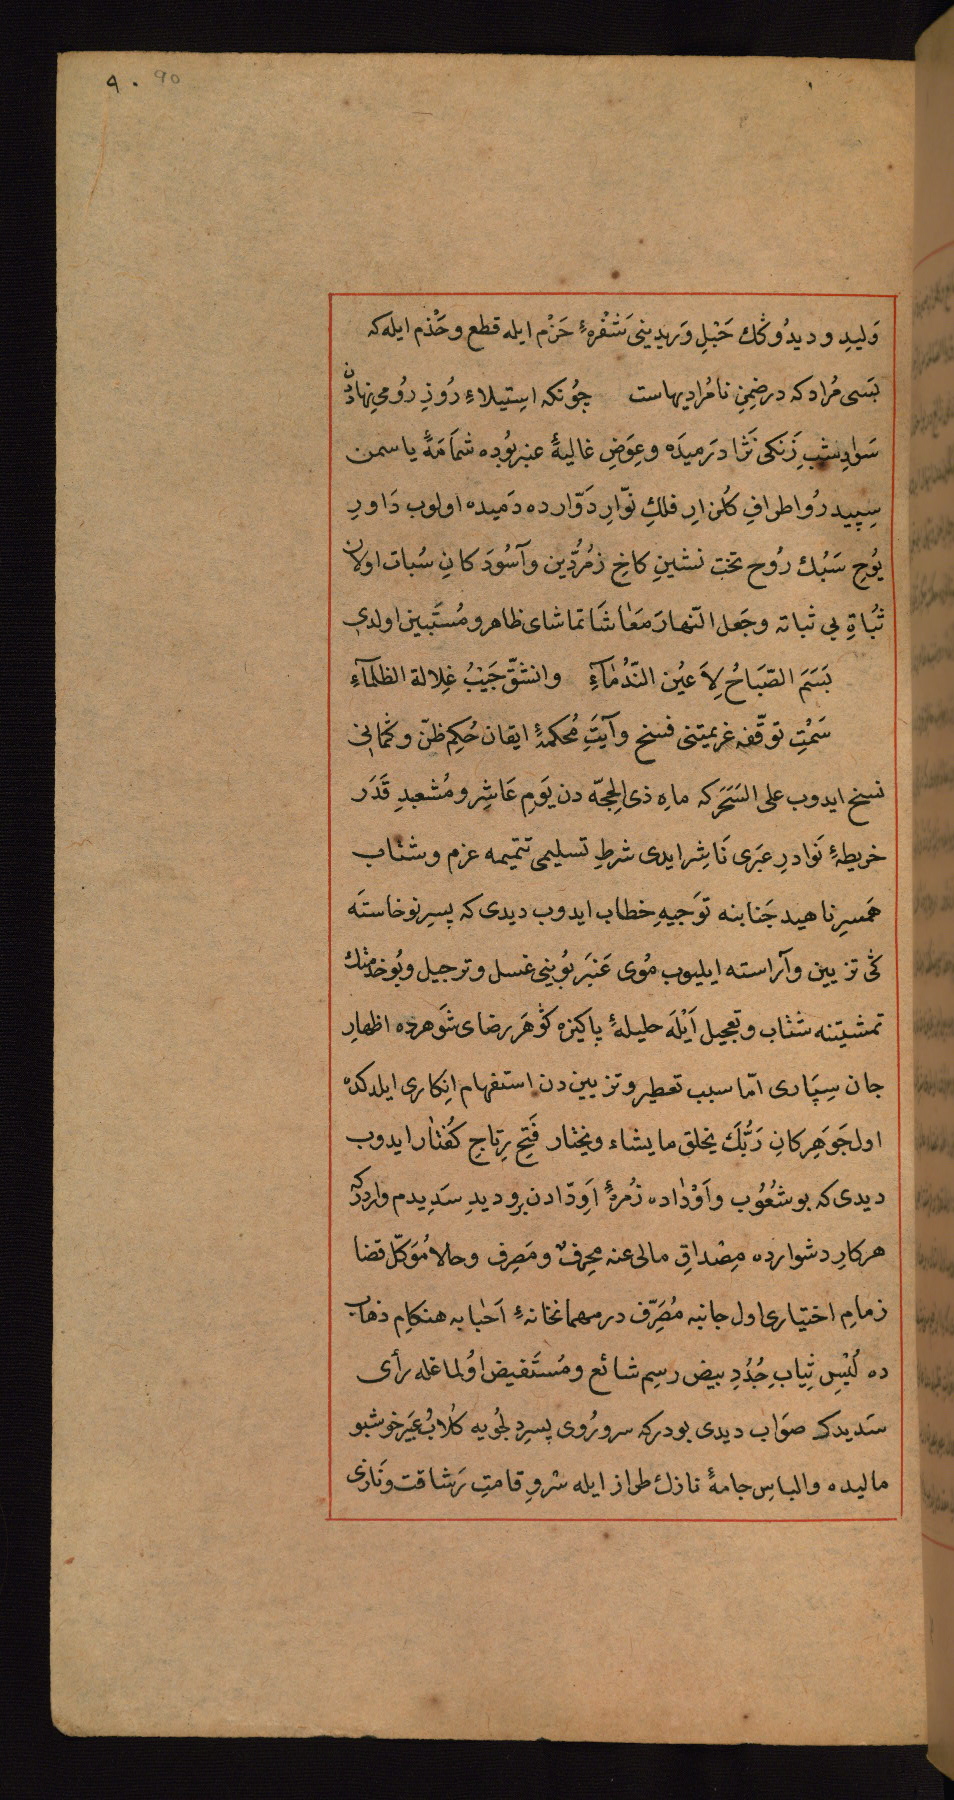 ٩٠ 90
وَليدِ و ديدُوكك حَبْلِ وَريدينى شَفْرهٔ حَزْم ايله قطع و حَذْم ايله كه
بَسى مُراد كه در ضِمنِ نامُراديهاست چونكه استيلاءِ رُوزِ رُومى نهاددن
سَوادِ شبِ زَنكى نَژاد رَميدَه و عِوَضِ غاليهٔ عنبر بُوده شمَامَهٔ ياسمن
سِپيد رُو اطرافِ كلزارِ فلكِ نوّارِ دَوّارده دَميده اولوب دَاورِ
يُوحِ سَبُك رُوح تخت نشينِ كاخِ زمُرُّدين و آسُودَكانِ سُبات اولان
ثُباةِ بى ثباته وجَعل النّهارَ مَعَاشًا تماشاى ظاهر و مُستَبين اولدى
بَسَمَ الصّبَاحُ لِأَعيُن النّدُمَآءِ وانشقّ جَيْبُ غِلالة الظلمآءِ
سَمْتِ توقّفه عزيمتنى فسخ و آيتِ مُحكمهٔ ايقان حُكمِ ظنّ و كمانى
نسخ ايدوب على السَحَر كه ماهِ ذى الحِجّه دن يَومِ عَاشِر و مُشعبدِ قَدَر
خريطهٔ نَوادرِ عبَرى نَاشِر ايدى شرطِ تسليمى تتميمه عزم و شتاب
همَسرِ ناهيد جَنابنه تَوجيهِ خطاب ايدوب ديدى كه پسرِ نوخاستَه
كى تزيين و آراسته ايليوب مُوى عَنبَر بُوينى غسل و ترجيل و بُو خدمتك
تمشيتنه شتاب و تعجيل اَيْلَه حليلهٔ پاكيزه كَوهَر رضاى شَوهرده اظهارِ
جان سِپَارى امّا سبب تعطير و تزيين دن استفهام انِكارى ايلدكده
اول جَوهَرِ كانِ رَبُّكَ يخلق ما يشاء ويختار فَتحِ رِتاجِ كُفتار ايدوب
ديدى كه بو شُعُوب و اَوْدٰاده زُمرهٔ اَوِدّادن بر وديدِ سَدِيدم واردر كه
هر كارِ دشوارده مِصْداقِ مالى عنه محرفٌ ومَصرف و حالا مُوَكّل قضا
زمامِ اختيارى اول جانبه مُصَرِّف در مهمانخانهٔ اَحبابه هنكامِ ذهاب
ده لُبْسِ ثِيابِ جُدُدِ بيض رسمِ شائع و مُستَفيض اوُلماغله رأى
سَديد كه صوَاب ديدى بودر كه سر و رُوى پسرِ دلجُويه كلاب و عبَيرِ خوشبو
ماليده و الباسِ جامهٔ نازك طراز ايله سَروِ قامتِ رَشاقت و نَازى